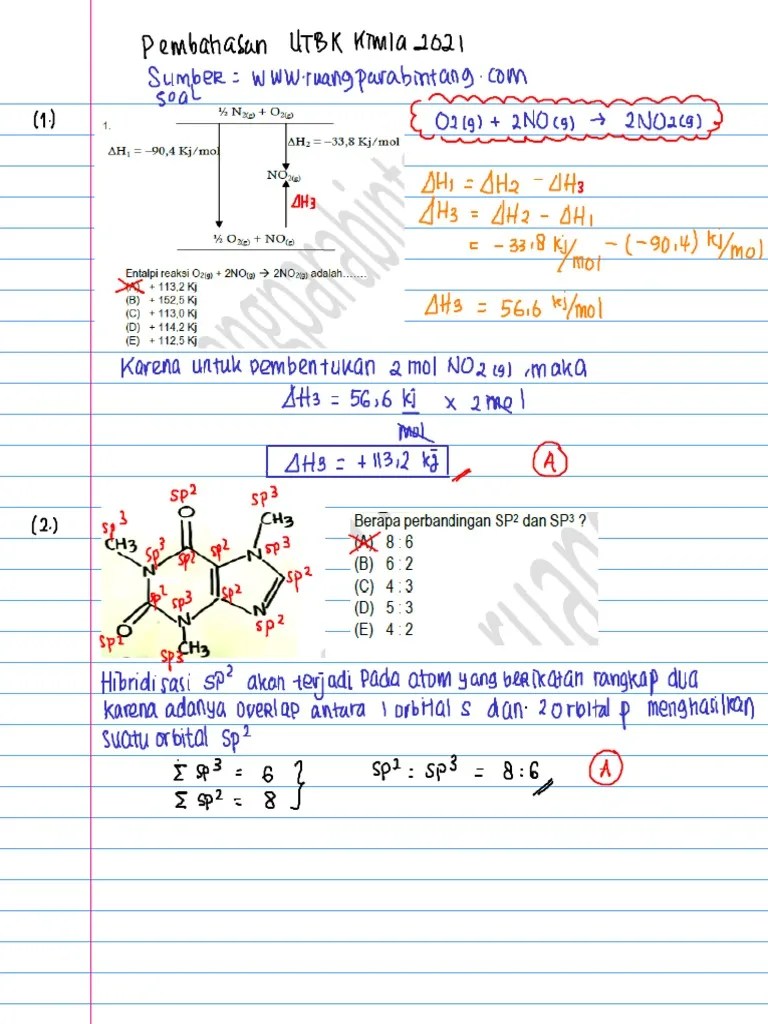 Pembahasan UTBK Kimia 2021
Sumber = www.ruangparabintang.com
soal
(1.)
1.
½ N₂(g) + O₂(g)
ΔH₁ = −90,4 Kj/mol
ΔH₂ = −33,8 Kj/mol
NO₂(g)
ΔH3
½ O₂(g) + NO(g)
Entalpi reaksi O₂(g) + 2NO(g) → 2NO₂(g) adalah.......
(A) + 113,2 Kj
(B) + 152,5 Kj
(C) + 113,0 Kj
(D) + 114,2 Kj
(E) + 112,5 Kj
O2(g) + 2NO(g) → 2NO2(g)
ΔH1 = ΔH2 − ΔH3
ΔH3 = ΔH2 − ΔH1
= −33,8 kj/mol − (−90,4) kj/mol
ΔH3 = 56,6 kj/mol
Karena untuk pembentukan 2 mol NO2(g), maka
ΔH3 = 56,6 kj/mol x 2 mol
ΔH3 = +113,2 kj
A
(2.)
sp2
sp3
O
CH3
sp3
CH3
sp3
sp2
sp2
N
sp3
N
sp2
sp2
sp3
sp2
N
N
sp2
O
sp2
CH3
sp3
Berapa perbandingan SP² dan SP³ ?
(A) 8 : 6
(B) 6 : 2
(C) 4 : 3
(D) 5 : 3
(E) 4 : 2
ruan
Hibridisasi sp² akan terjadi pada atom yang berikatan rangkap dua
karena adanya overlap antara 1 orbital s dan 2 orbital p menghasilkan
suatu orbital sp²
Σ sp³ = 6
Σ sp² = 8
sp² : sp³ = 8:6
A
ruangparabintang